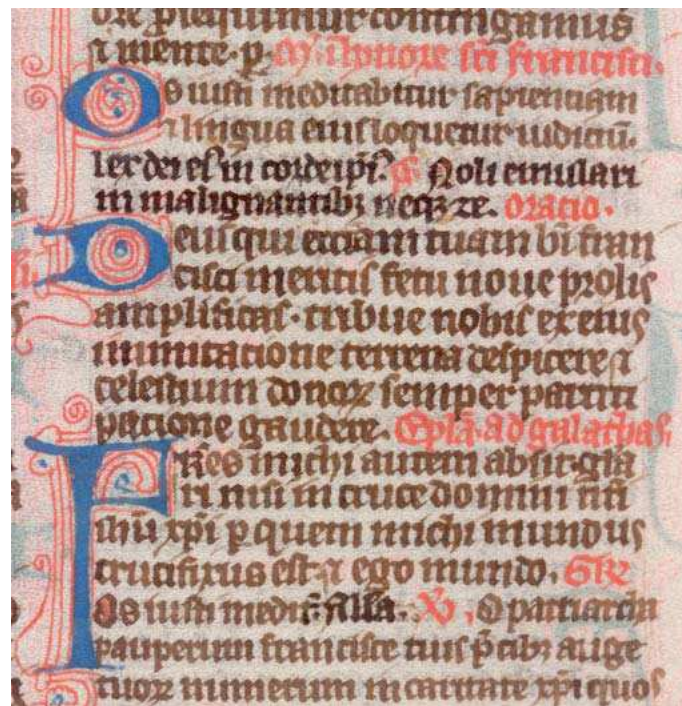 ore p̄sequimur contingamus
⁊ mente · p̱ sc̄i francisci ·
Os iusti meditabitur sapientiam
⁊ lingua eius loquetur iudiciū ·
lex dei eius in corde ip̄i⁹ · p̄s Noli emulari
in malignantibꝫ neqꝫ ze · Oracio ·
Deus qui ecc̄iam tuam bt̄i fran
cisci meritis fetu noue prolis
amplificas · tribue nobis ex eius
imitatione terrena despicere ⁊
celestium donoꝝ semper partici
patione gaudere · Ep̄la · ad galathas ·
Fres michi autem absit gl̄a
ri nisi in cruce domini nr̄i
ihū xp̄i p̱ quem michi mundus
crucifixus est · ⁊ ego mundo · GR̄
Os iusti medit̄ · Alla · ℣ · O patriarcha
pauperum francisce tuis p̄cibꝫ auge
tuoꝝ numerum in caritate xp̄i quos